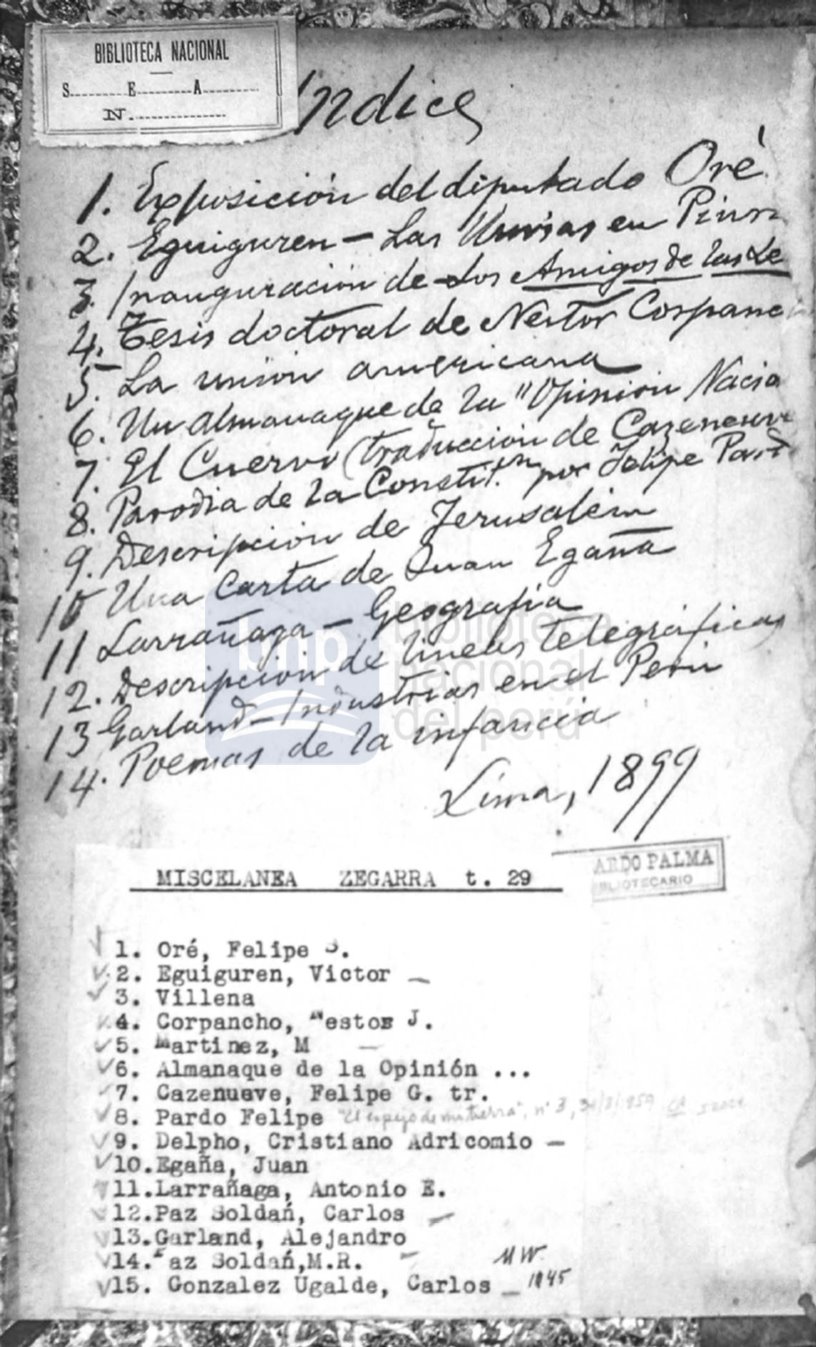 BIBLIOTECA NACIONAL
S.........E.........A.........
N. ................
Indice
1. Exposición del diputado Oré
2. Eguiguren — Las lluvias en Piura
3. Inauguración de Los Amigos de las Le
4. Tesis doctoral de Nestor Corpanc
5. La union americana
6. Un almanaque de la "Opinion Nacio
7. El Cuervo (traducción de Cazeneuve
8. Parodia de la Constit.on por Felipe Pardo
9. Descripcion de Jerusalem
10 Una carta de Juan Egaña
11 Larrañaga — Geografia
12. Descripcion de lineas telegráficas
13 Garland — Industrias en el Perú
14. Poemas de la infancia
Lima, 1899
bnp biblioteca nacional del perú
ARDO PALMA
BLIOTECARIO
MISCELANEA ZEGARRA t. 29
1. Oré, Felipe S.
2. Eguiguren, Victor —
3. Villena
4. Corpancho, Nestor J.
5. Martinez, M —
6. Almanaque de la Opinión ...
7. Cazenueve, Felipe G. tr.
8. Pardo Felipe "El espejo de mi tierra", nº 3, 31/3/859
9. Delpho, Cristiano Adricomio —
10.Egaña, Juan
11.Larrañaga, Antonio E.
12.Paz Soldań, Carlos —
13.Garland, Alejandro
14.Paz Soldań,M.R. —
15. Gonzalez Ugalde, Carlos — 1945